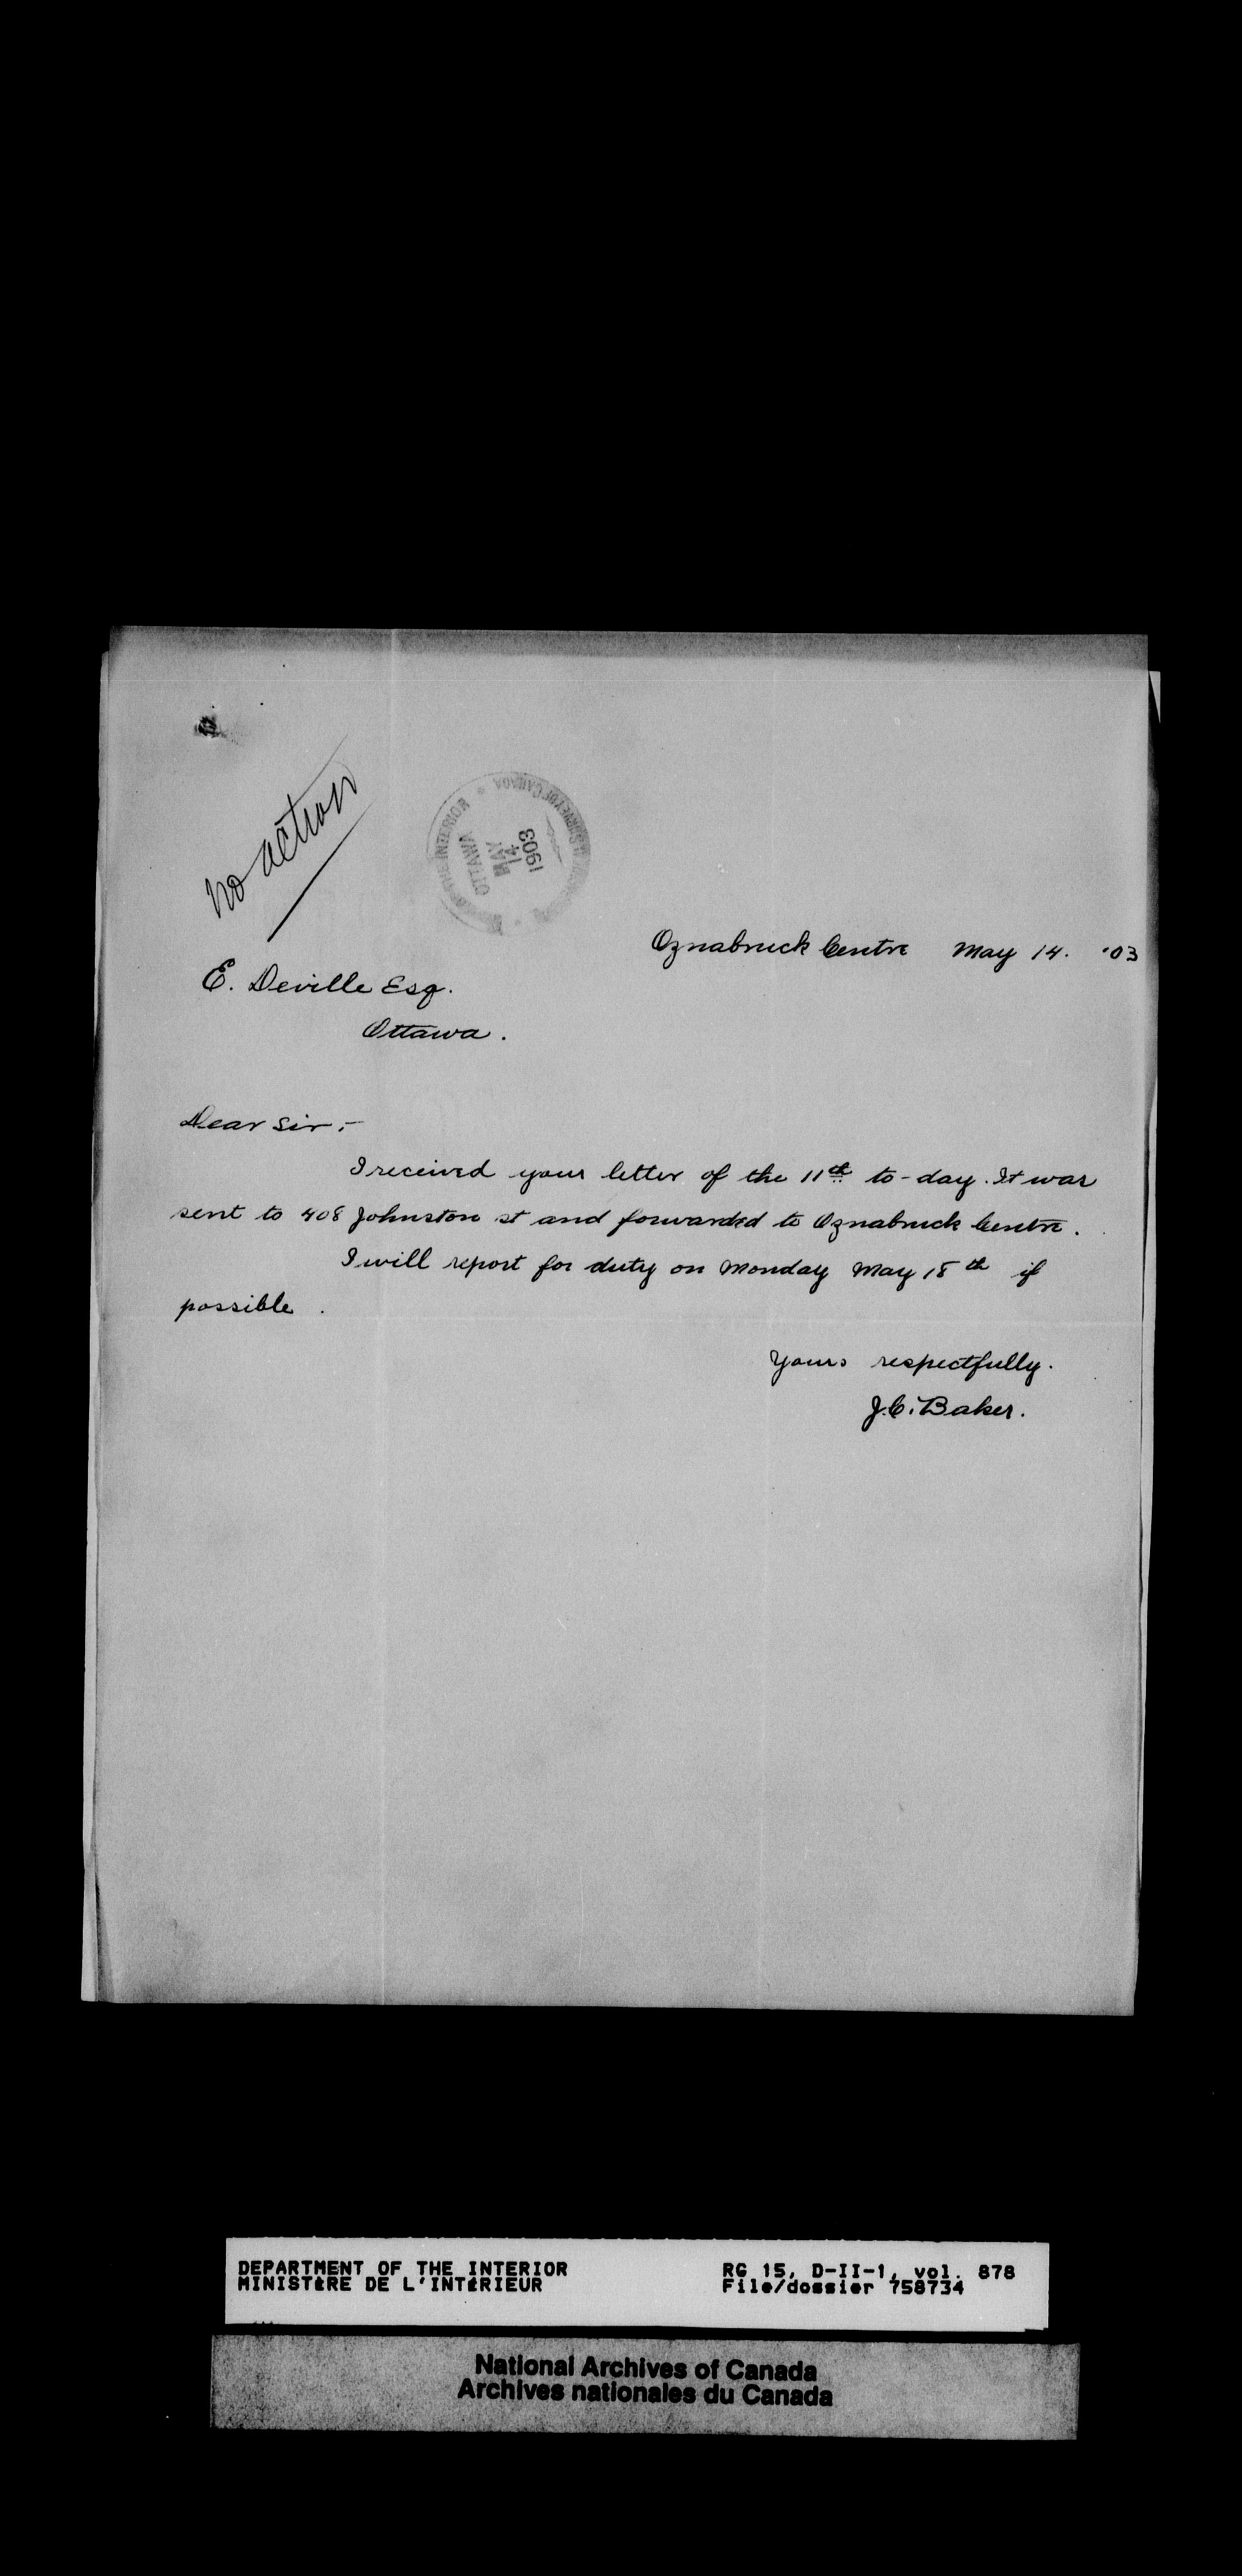 no action
INTERIOR
SURVEY OF CANADA
OTTAWA
MAY
14
1903
Oznabruck Centre May 14. '03
E. Deville Esq.
Ottawa.
Dear Sir:-
I received your letter of the 11th to-day. It was
sent to 408 Johnston st and forwarded to Oznabruck Centre.
I will report for duty on Monday May 18th if
possible.
Yours respectfully.
J.C. Baker.
DEPARTMENT OF THE INTERIOR
MINISTÈRE DE L'INTÉRIEUR
RG 15, D-II-1, vol. 878
File/dossier 758734
National Archives of Canada
Archives nationales du Canada